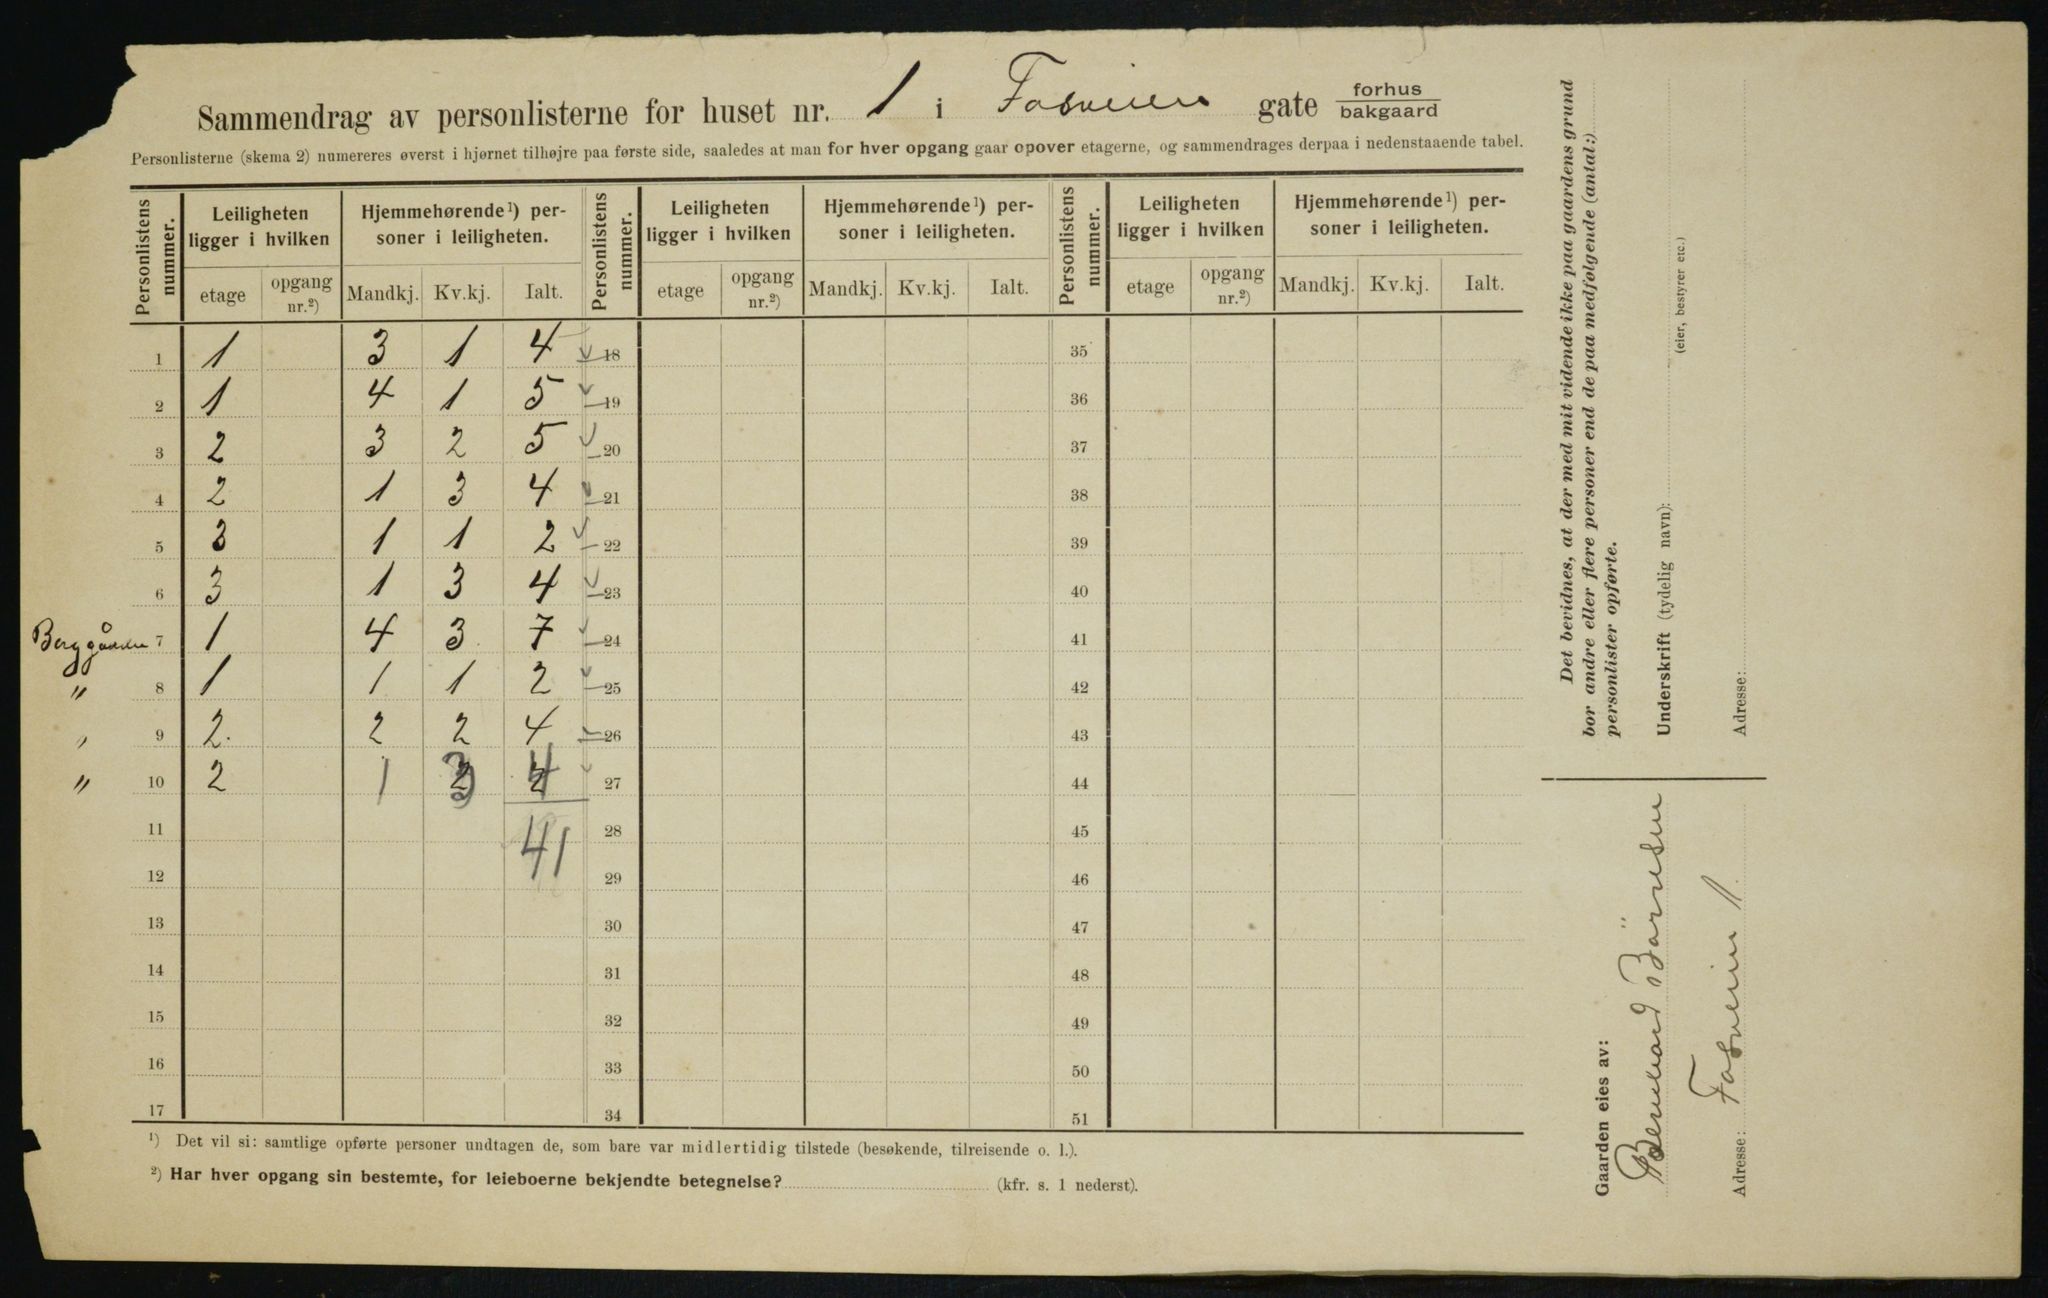 Sammendrag av personlisterne for huset nr. 1 i Fosveien gate forhus/bakgaard
Personlisterne (skema 2) numereres øverst i hjørnet tilhøjre paa første side, saaledes at man for hver opgang gaar opover etagerne, og sammendrages derpaa i nedenstaaende tabel.
Personlistens nummer. Leiligheten ligger i hvilken Hjemmehørende¹) personer i leiligheten. Personlistens nummer. Leiligheten ligger i hvilken Hjemmehørende¹) personer i leiligheten. Personlistens nummer. Leiligheten ligger i hvilken Hjemmehørende¹) personer i leiligheten.
etage opgang nr.²) Mandkj. Kv.kj. Ialt. etage opgang nr.²) Mandkj. Kv.kj. Ialt. etage opgang nr.²) Mandkj. Kv.kj. Ialt.
1 1 3 1 4 18 35
2 1 4 1 5 19 36
3 2 3 2 5 20 37
4 2 1 3 4 21 38
5 3 1 1 2 22 39
6 3 1 3 4 23 40
7 1 4 3 7 24 41
" 8 1 1 1 2 25 42
" 9 2 2 2 4 26 43
" 10 2 1 3 4 27 44
11 28 45
41
12 29 46
13 30 47
14 31 48
15 32 49
16 33 50
17 34 51
¹) Det vil si: samtlige opførte personer undtagen de, som bare var midlertidig tilstede (besøkende, tilreisende o. l.).
²) Har hver opgang sin bestemte, for leieboerne bekjendte betegnelse? (kfr. s. 1 nederst).
Det bevidnes, at der med mit vidende ikke paa gaardens grund
bor andre eller flere personer end de paa medfølgende (antal:)
personlister opførte.
Underskrift (tydelig navn):
(eier, bestyrer etc.)
Adresse:
Gaarden eies av:
Bernhard
Adresse: Fosveien 1.